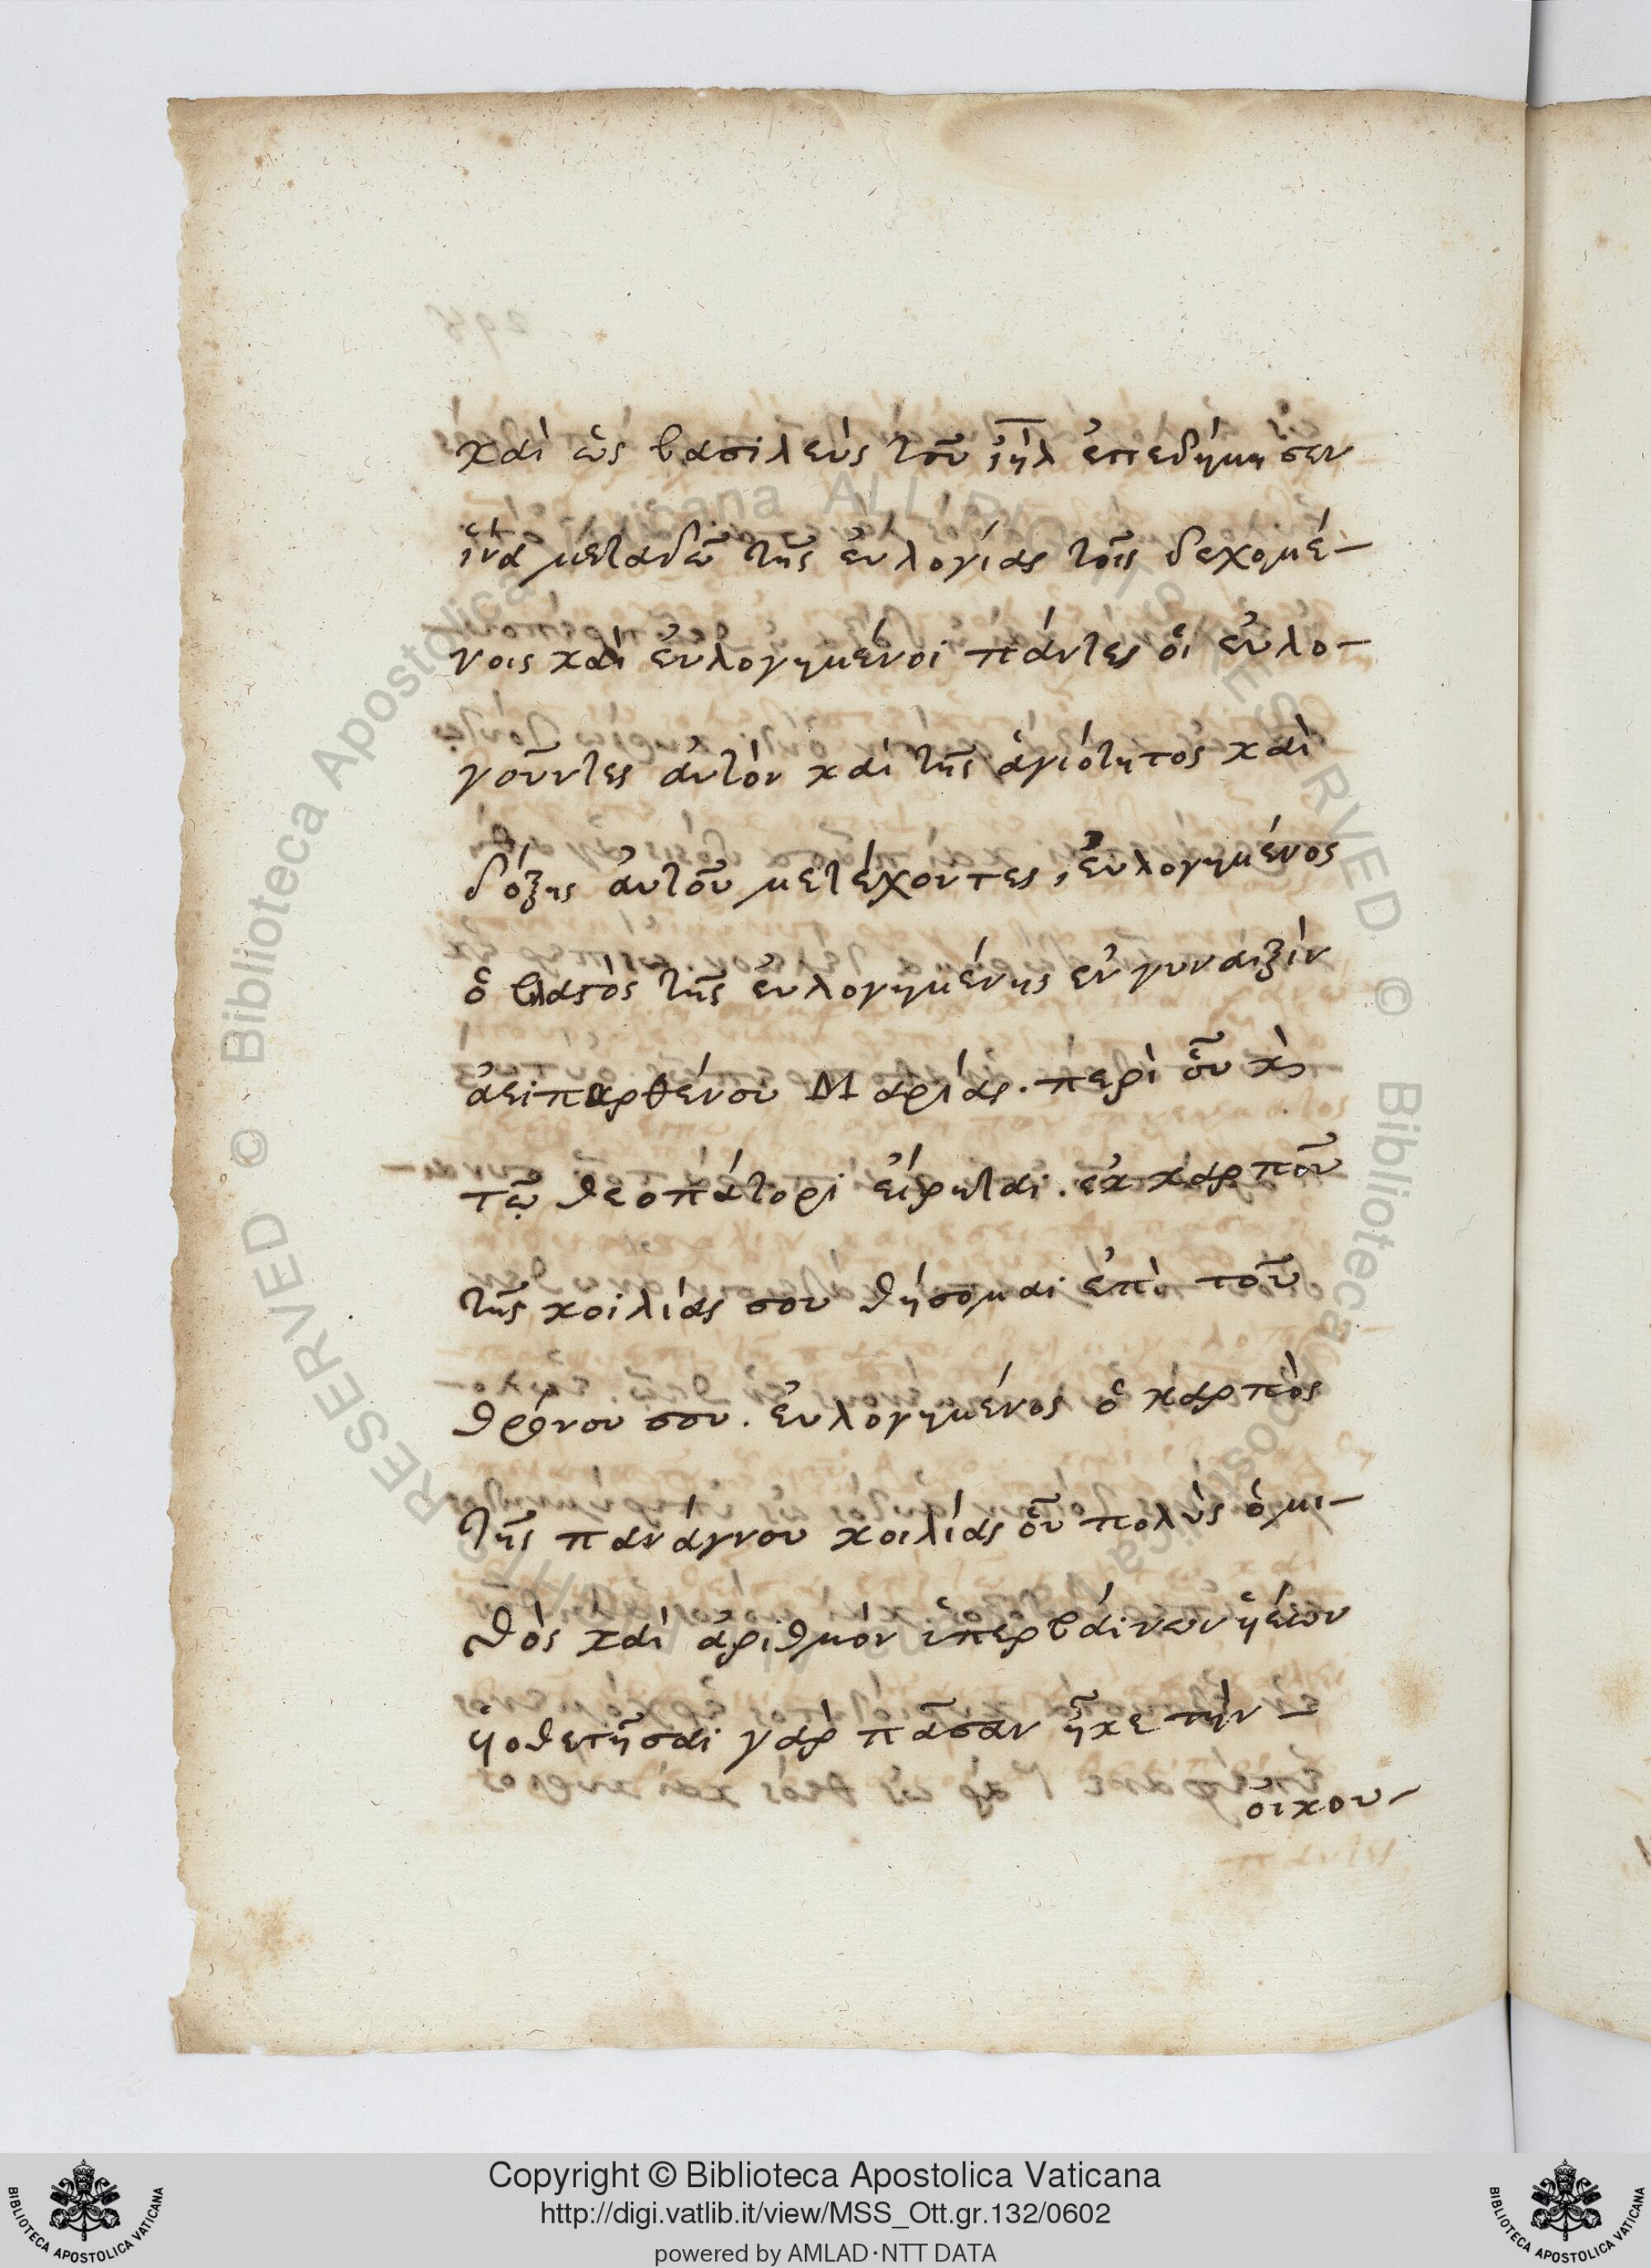 καὶ ὡς βασιλεὺς τοῦ ιηλ ἐπεδήμησεν
ἵνα μεταδῶ τῆς εὐλογίας τοῖς δεχομέ-
νοις καὶ εὐλογημένοι πάντες οἱ εὐλο-
γοῦντες αὐτὸν καὶ τῆς ἁγιότητος καὶ
δόξης αὐτοῦ μετέχοντες, εὐλογημένος
ὁ βλαστὸς τῆς εὐλογημένης ἐν γυναιξὶν
ἀειπαρθένου Μαρίας. περὶ οὗ κ
τῷ θεοπάτορι εἴρηται. ἐκ καρποῦ
τῆς κοιλίας σου θήσομαι ἐπὶ τοῦ
θρόνου σου. εὐλογημένος ὁ καρπὸς
τῆς πανάγνου κοιλίας οὗ πολὺς ὁ μι-
σθὸς καὶ ἀριθμὸν ὑπερβαίνων
ἡοθετῆσαι γὰρ πᾶσαν ἧκε τὴν -
οἰκου-
© Biblioteca Apostolica Vaticana ALL RIGHTS RESERVED
Copyright © Biblioteca Apostolica Vaticana
http://digi.vatlib.it/view/MSS_Ott.gr.132/0602
powered by AMLAD·NTT DATA
BIBLIOTECA APOSTOLICA VATICANA
BIBLIOTECA APOSTOLICA VATICANA